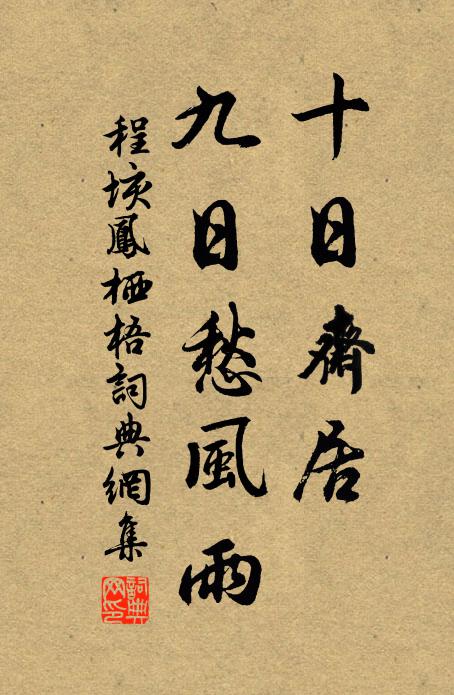 十日齋居
九日愁風雨
程垓鳳栖梧詞典網集
詞典
网印